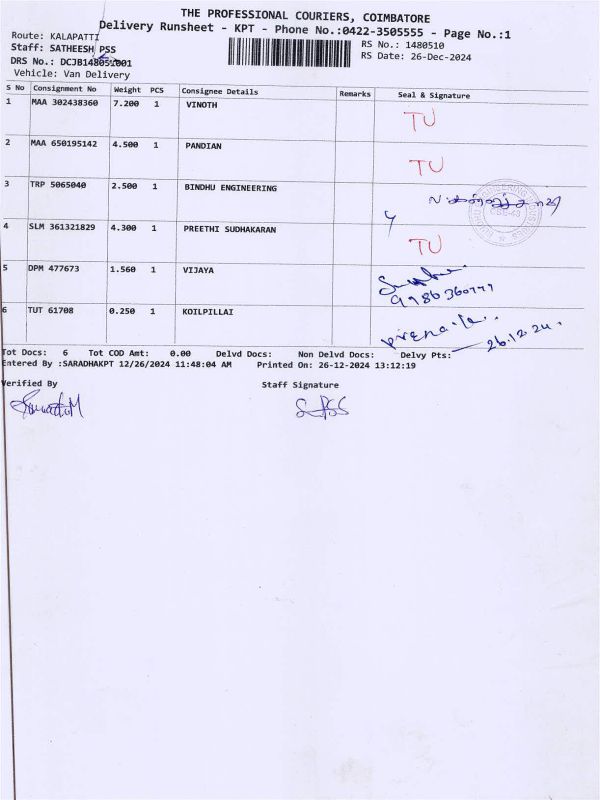 THE PROFESSIONAL COURIERS, COIMBATORE
Delivery Runsheet - KPT - Phone No.:0422-3505555 - Page No.:1
Route: KALAPATTI
RS No.: 1480510
Staff: SATHEESH PSS
RS Date: 26-Dec-2024
DRS No.:
Vehicle: Van Delivery
S No Consignment No Weight PCS Consignee Details Remarks Seal & Signature
1 MAA 302438360 7.200 1 VINOTH TU
2 MAA 650195142 4.500 1 PANDIAN TU
3 TRP 5065040 2.500 1 BINDHU ENGINEERING
4 SLM 361321829 4.300 1 PREETHI SUDHAKARAN TU
5 DPM 477673 1.560 1 VIJAYA
6 TUT 61708 0.250 1 KOILPILLAI
26.12.24.
Tot Docs: 6 Tot COD Amt: 0.00 Delvd Docs: Non Delvd Docs: Delvy Pts:
Entered By :SARADHAKPT 12/26/2024 11:48:04 AM Printed On: 26-12-2024 13:12:19
Verified By Staff Signature